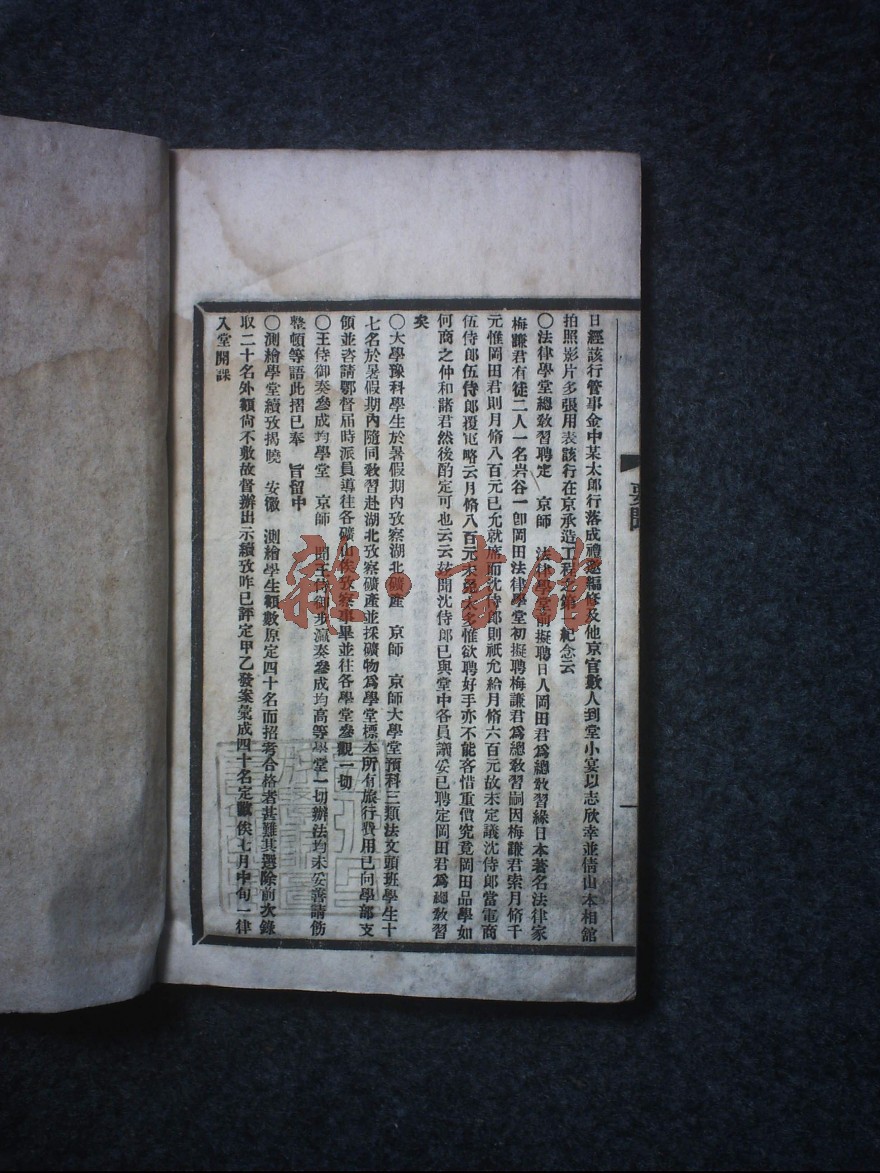 日經該行管事金中某太郎行落成禮邀編修及他京官數人到堂小宴以志欣幸並倩山本相館
拍照影片多張用表該行在京承造工程之第一紀念云
〇法律學堂總敎習聘定 京師 法律學堂前擬聘日人岡田君爲總敎習緣日本著名法律家
梅謙君有徒二人一名岩谷一卽岡田法律學堂初擬聘梅謙君爲總敎習嗣因梅謙君索月脩千
元惟岡田君則月脩八百元已允就席而沈侍郎則祇允給月脩六百元故未定議沈侍郎當電商
伍侍郎伍侍郎覆電略云月脩八百元未免太多惟欲聘好手亦不能吝惜重價究竟岡田品學如
何商之仲和諸君然後酌定可也云云茲聞沈侍郎已與堂中各員議妥已聘定岡田君爲總敎習
矣
〇大學豫科學生於暑假期內攷察湖北礦產 京師 京師大學堂預科三類法文頭班學生十
七名於暑假期內隨同敎習赴湖北攷察礦產並採礦物爲學堂標本所有旅行費用已向學部支
領並咨請鄂督屆時派員導往各礦山俟攷察事畢並往各學堂參觀一切
〇王侍御奏參成均學堂 京師 聞王侍御步瀛奏參成均高等學堂一切辦法均未妥善請飭
整頓等語此摺已奉 旨留中
〇測繪學堂續攷揭曉 安徽 測繪學生額數原定四十名而招考合格者甚難其選除前次錄
取二十名外額尚不敷故督辦出示續攷昨已評定甲乙發案彙成四十名定數俟七月中旬一律
入堂開課
要聞
一
雜·書館